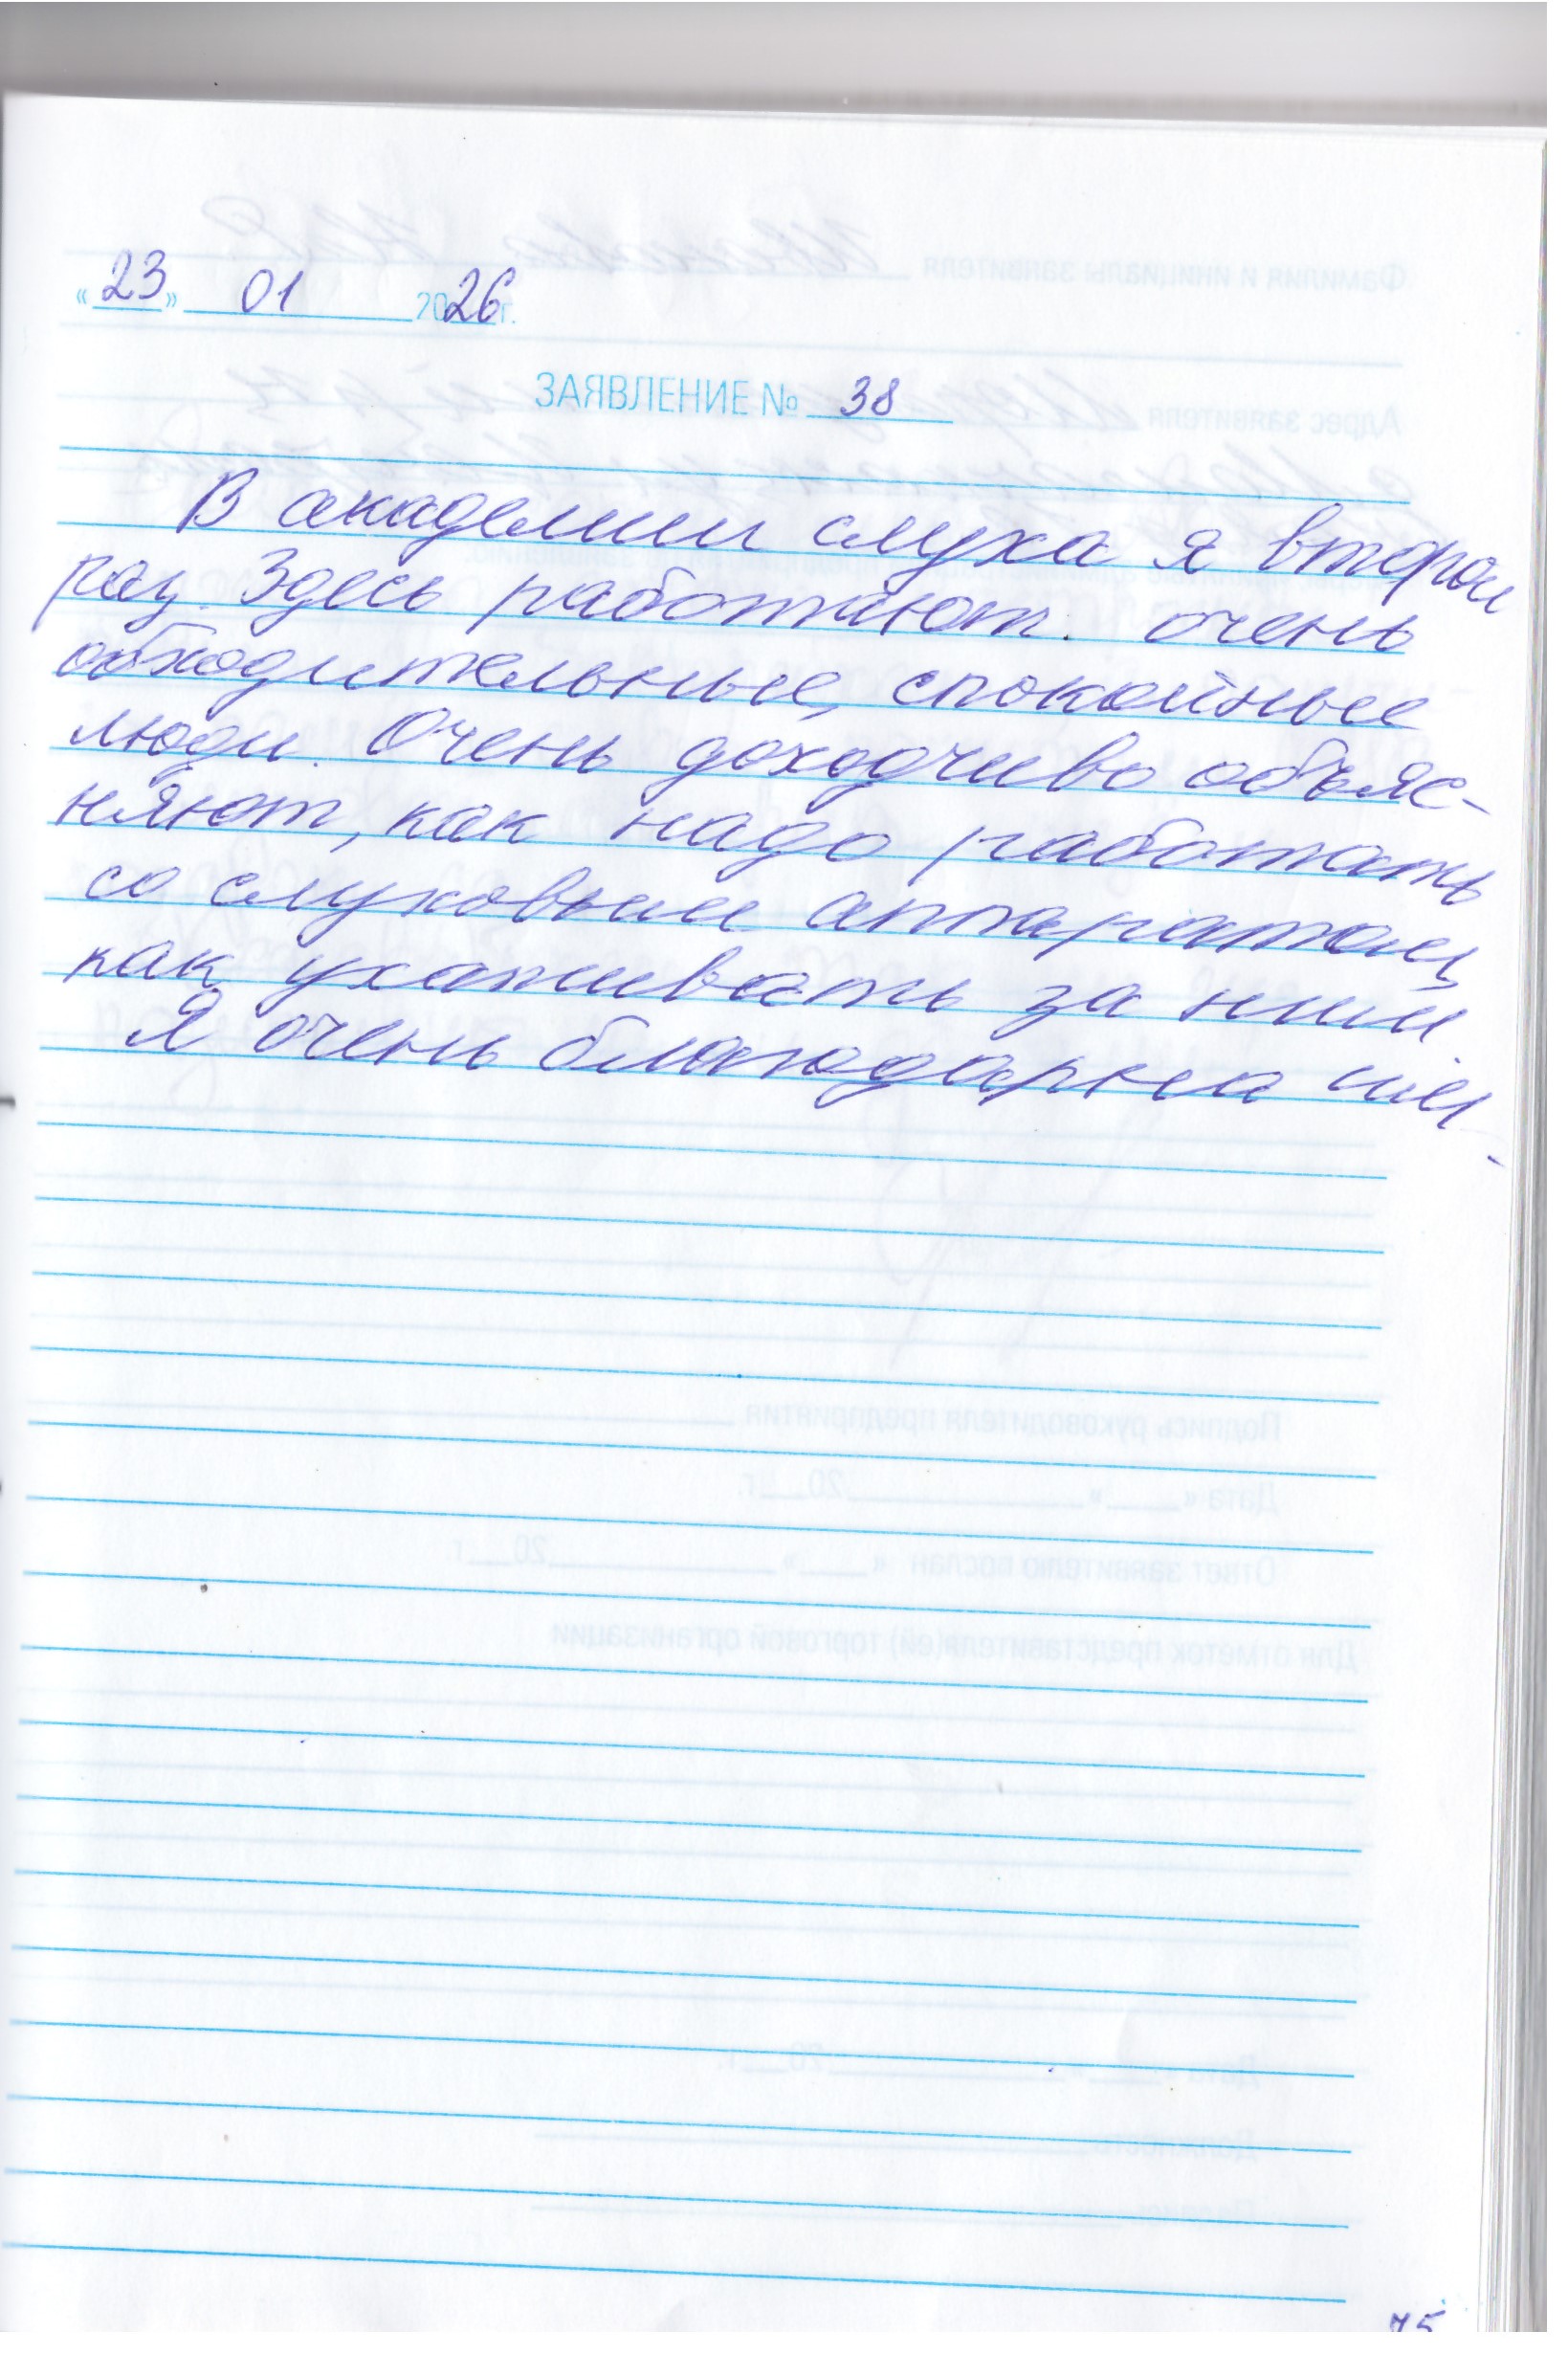 «23» 01 2026г.
ЗАЯВЛЕНИЕ № 38
В академии слуха я второй
раз. Здесь работают очень
обходительные, спокойные
люди. Очень доходчиво объяс-
няют, как надо работать
со слуховым аппаратом,
как ухаживать за ним.
Я очень благодарна им.
75